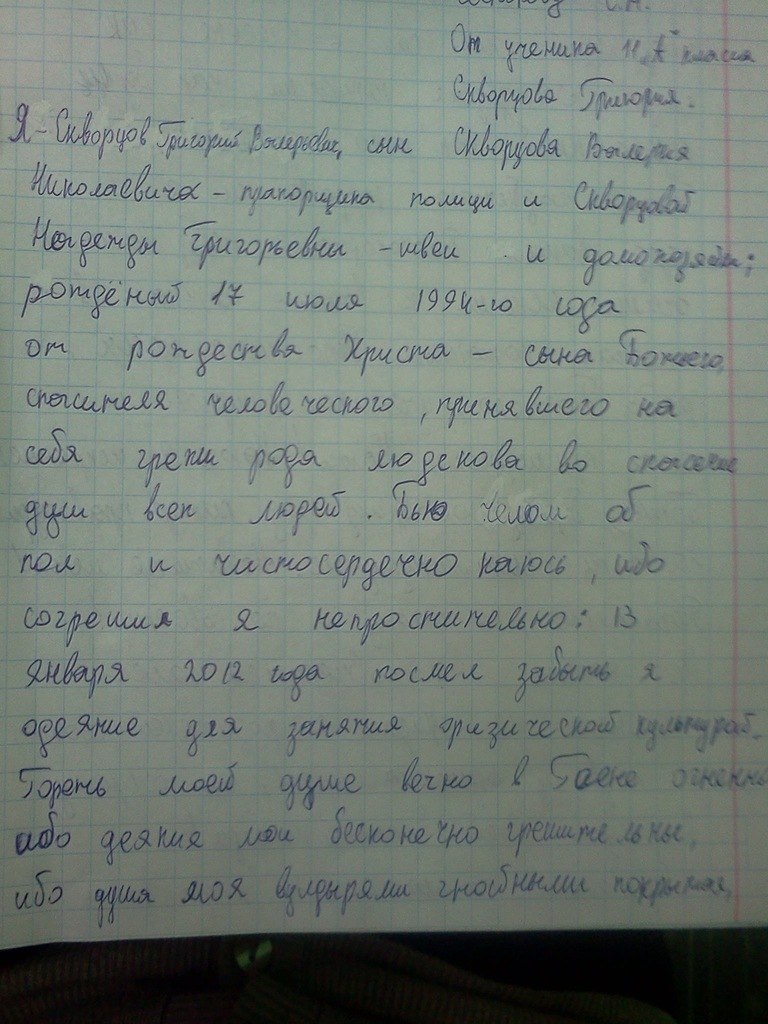 С.Н.
От ученика 11 „А" класса
Скворцова Григория.
Я - Скворцов Григорий Валерьевич, сын Скворцова Валерия
Николаевича - прапорщика полици и Скворцовой
Надежды Григорьевны - швеи и домохозяйки;
рождёный 17 июля 1994-го года
от рождества Христа - сына Божьего,
спасителя человеческого, принявшего на
себя грехи рода людскова во спасение
души всех людей. Бью челом об
пол и чистосердечно каюсь, ибо
согрешил я непростительно: 13
января 2012 года посмел забыть я
одеяние для занятия физической культурой.
Гореть моей душе вечно в Гаене огненной
ибо деяния мои бесконечно грешительны,
ибо душа моя вулдырями гнобными покрытая,